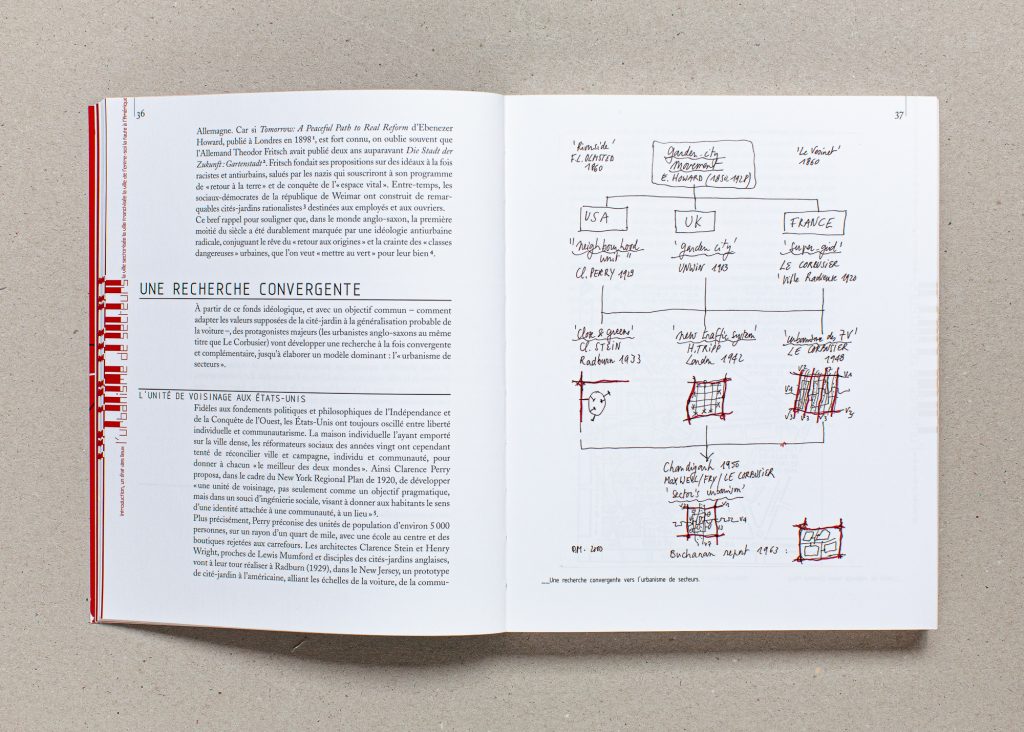 36
Allemagne. Car si Tomorrow: A Peaceful Path to Real Reform d'Ebenezer
Howard, publié à Londres en 1898¹, est fort connu, on oublie souvent que
l'Allemand Theodor Fritsch avait publié deux ans auparavant Die Stadt der
Zukunft : Gartenstadt². Fritsch fondait ses propositions sur des idéaux à la fois
racistes et antiurbains, salués par les nazis qui souscriront à son programme
de « retour à la terre » et de conquête de l'« espace vital ». Entre-temps, les
sociaux-démocrates de la république de Weimar ont construit de remar-
quables cités-jardins rationalistes³ destinées aux employés et aux ouvriers.
Ce bref rappel pour souligner que, dans le monde anglo-saxon, la première
moitié du siècle a été durablement marquée par une idéologie antiurbaine
radicale, conjuguant le rêve du « retour aux origines » et la crainte des « classes
dangereuses » urbaines, que l'on veut « mettre au vert » pour leur bien⁴.
UNE RECHERCHE CONVERGENTE
À partir de ce fonds idéologique, et avec un objectif commun – comment
adapter les valeurs supposées de la cité-jardin à la généralisation probable de
la voiture –, des protagonistes majeurs (les urbanistes anglo-saxons au même
titre que Le Corbusier) vont développer une recherche à la fois convergente
et complémentaire, jusqu'à élaborer un modèle dominant : l'« urbanisme de
secteurs ».
L'UNITÉ DE VOISINAGE AUX ÉTATS-UNIS
Fidèles aux fondements politiques et philosophiques de l'Indépendance et
de la Conquête de l'Ouest, les États-Unis ont toujours oscillé entre liberté
individuelle et communautarisme. La maison individuelle l'ayant emporté
sur la ville dense, les réformateurs sociaux des années vingt ont cependant
tenté de réconcilier ville et campagne, individu et communauté, pour
donner à chacun « le meilleur des deux mondes ». Ainsi Clarence Perry
proposa, dans le cadre du New York Regional Plan de 1920, de développer
« une unité de voisinage, pas seulement comme un objectif pragmatique,
mais dans un souci d'ingénierie sociale, visant à donner aux habitants le sens
d'une identité attachée à une communauté, à un lieu »⁵.
Plus précisément, Perry préconise des unités de population d'environ 5 000
personnes, sur un rayon d'un quart de mile, avec une école au centre et des
boutiques rejetées aux carrefours. Les architectes Clarence Stein et Henry
Wright, proches de Lewis Mumford et disciples des cités-jardins anglaises,
vont à leur tour réaliser à Radburn (1929), dans le New Jersey, un prototype
de cité-jardin à l'américaine, alliant les échelles de la voiture, de la commu-
introduction, un état des lieux | l'urbanisme de secteurs
37
'Riverside'
F.L. OLMSTED
1860
garden-city
movement
E. HOWARD (1850-1928)
'Le Vésinet'
1860
USA
UK
FRANCE
"neighbourhood
unit"
Cl. PERRY 1929
'garden city'
UNWIN 1913
'super-grid'
LE CORBUSIER
'Ville Radieuse' 1920
'Close & greens'
Cl. STEIN
Radburn 1933
'new traffic system'
H. TRIPP
London 1942
'urbanisme des 7V'
LE CORBUSIER
1948
Chandigarh 1950
/FRY/LE CORBUSIER
'sector's urbanism'
2010
Buchanan report 1963 :
__Une recherche convergente vers l'urbanisme de secteurs.